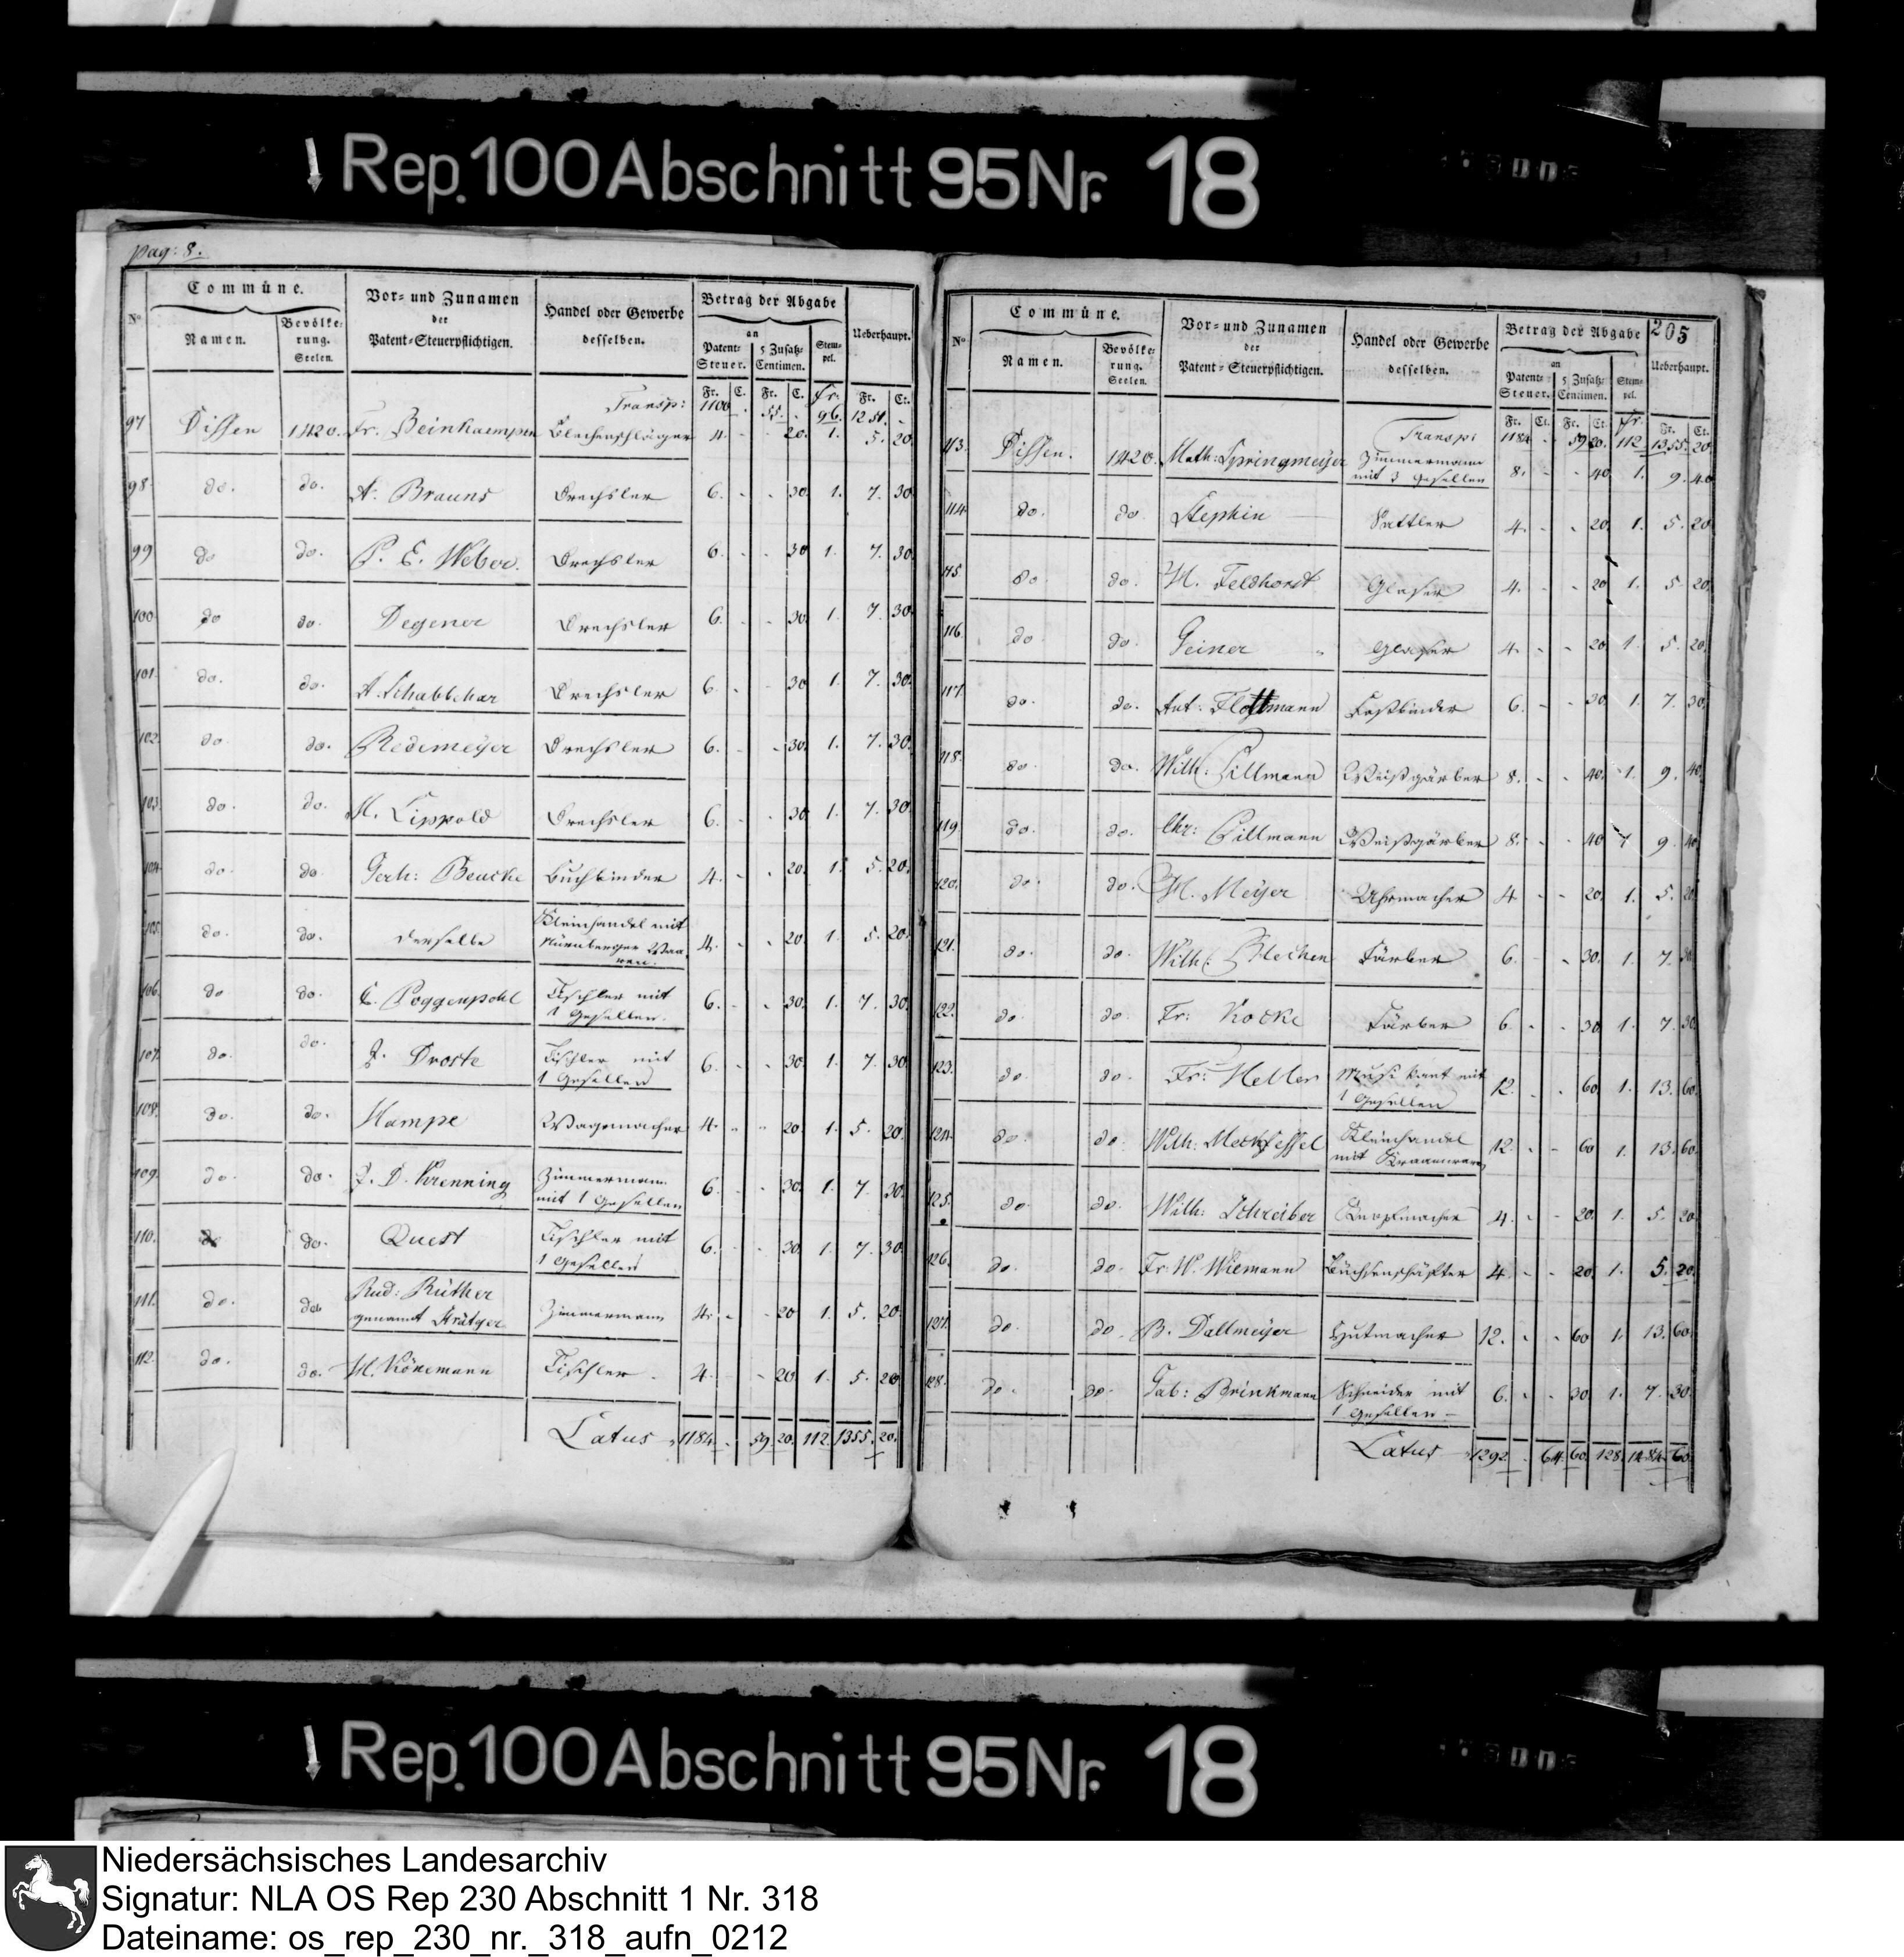 Rep. 100 Abschnitt 95 Nr. 18
pag: 8.
Nº Commüne. Vor- und Zunamen der Patent-Steuerpflichtigen. Handel oder Gewerbe desselben. Betrag der Abgabe Ueberhaupt.
Namen. Bevölkerung. Seelen. an Patent-Steuer. 5 Zusatz-Centimen. Stempel.
Fr. C. Fr. C. Fr: Fr. Ct.
Transp: 1100 . 55 . 96. 1251. -
97 Dissen 1420. Fr. Beinkaempen Blechenschläger 4. - - 20. 1. 5. 20.
98 do. do. A. Brauns Drechsler 6. - - 30. 1. 7. 30
99 do do. P. E. Weber. Drechsler 6. - - 30 1. 7. 30
100 do do. Degener Drechsler 6. - - 30. 1. 7. 30.
101. do. do. A. Schabbehar Drechsler 6. - - 30 1. 7. 30.
102. do. do. Redemeyer Drechsler 6. - - 30. 1. 7. 30.
103. do. do. H. Lippold Drechsler 6. - - 30. 1. 7. 30.
104. do. do. Gerh: Beucke Buchbinder 4. - - 20. 1. 5. 20.
105. do. do. derselbe Kleinhandel mit
Nürnberger Waa-
ren. 4. - - 20. 1. 5. 20.
106. do do. C. Poggenpohl Tischler mit
1 Gesellen. 6. - - 30. 1. 7. 30.
107. do. do. J. Droste Tischler mit
1 Gesellen 6. - - 30. 1. 7. 30
108. do. do. Hampe Wagemacher 4. - - 20. 1. 5. 20.
109. do. do. J. D. Krenning Zimmermann
mit 1 Gesellen 6. - - 30. 1. 7. 30.
110. do do. Quest Tischler mit
1 Gesellen 6. - - 30. 1. 7. 30.
111. do. do. Rud: Rüther
genannt Krätger Zimmermann 4. - - 20 1. 5. 20.
112. do. do. H. Könemann Tischler. 4. - - 20 1. 5. 20
Latus 1184. - 59. 20. 112. 1355. 20.
205
Nº Commüne. Vor- und Zunamen der Patent-Steuerpflichtigen. Handel oder Gewerbe desselben. Betrag der Abgabe Ueberhaupt.
Namen. Bevölkerung. Seelen. an Patent-Steuer. 5 Zusatz-Centimen. Stempel.
Fr. Ct. Fr. Ct. Fr. Fr. Ct.
Transp: 1184 - 59 20. 112 1355. 20.
113. Dissen. 1420. Math: Springmeyer Zimmermann
mit 3 Gesellen 8. - - 40 1. 9. 40
114 do. do. Stephin Sattler 4. - - 20 1. 5. 20
115. do. do. H. Feldhordt Glaser 4. - - 20 1. 5. 20.
116. do do. Geiner Glaser 4. - - 20 1. 5. 20.
117. do. do. Ant: Flottmann Faßbinder 6. - - 30 1. 7. 30.
118. do. do. Wilh: Pillmann Weißgärber 8. - - 40. 1. 9. 40.
119. do. do. Chr: Pillmann Weißgärber 8. - - 40 1 9. 40
120. do. do. H. Meyer Uhrmacher 4 - - 20. 1. 5. 20
121. do. do. Wilh: Blechen Färber 6. - - 30. 1. 7. 30.
122. do. do. Fr: Kocke Färber 6. - - 30 1. 7. 30.
123. do. do. Fr: Heller Musikant mit
1 Gesellen 12. - - 60. 1. 13. 60.
124. do. do. Wilh: Meckfessel Kleinhandel
mit Kraamwaren 12. - - 60 1. 13. 60.
125. do. do. Wilh: Schreiber Knopfmacher 4. - - 20. 1. 5. 20
126. do. do. Fr. W. Wiemann Büchsenschäfter 4. - - 20. 1. 5. 20.
127. do. do. B. Dallmeyer Hutmacher 12. - - 60 1. 13. 60.
128. do. do. Gab: Brinkmann Schneider mit
1 Gesellen 6. - - 30 1. 7. 30.
Latus 1292. - 64. 60. 128. 1484. 60.
Rep. 100 Abschnitt 95 Nr. 18
Niedersächsisches Landesarchiv
Signatur: NLA OS Rep 230 Abschnitt 1 Nr. 318
Dateiname: os_rep_230_nr._318_aufn_0212